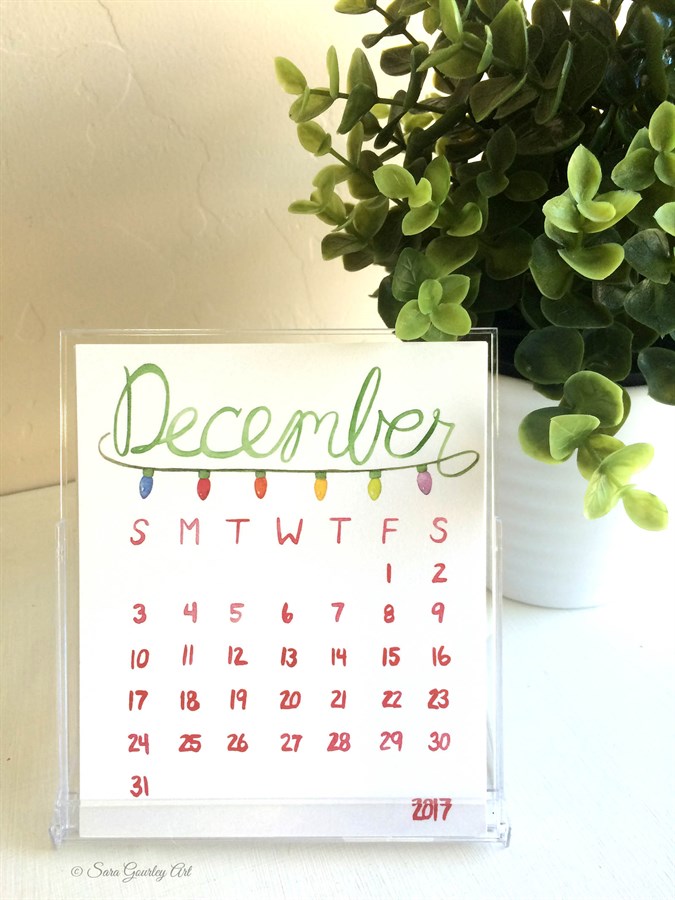 December
S M T W T F S
1 2
3 4 5 6 7 8 9
10 11 12 13 14 15 16
17 18 19 20 21 22 23
24 25 26 27 28 29 30
31
2017
© Sara Gourley Art